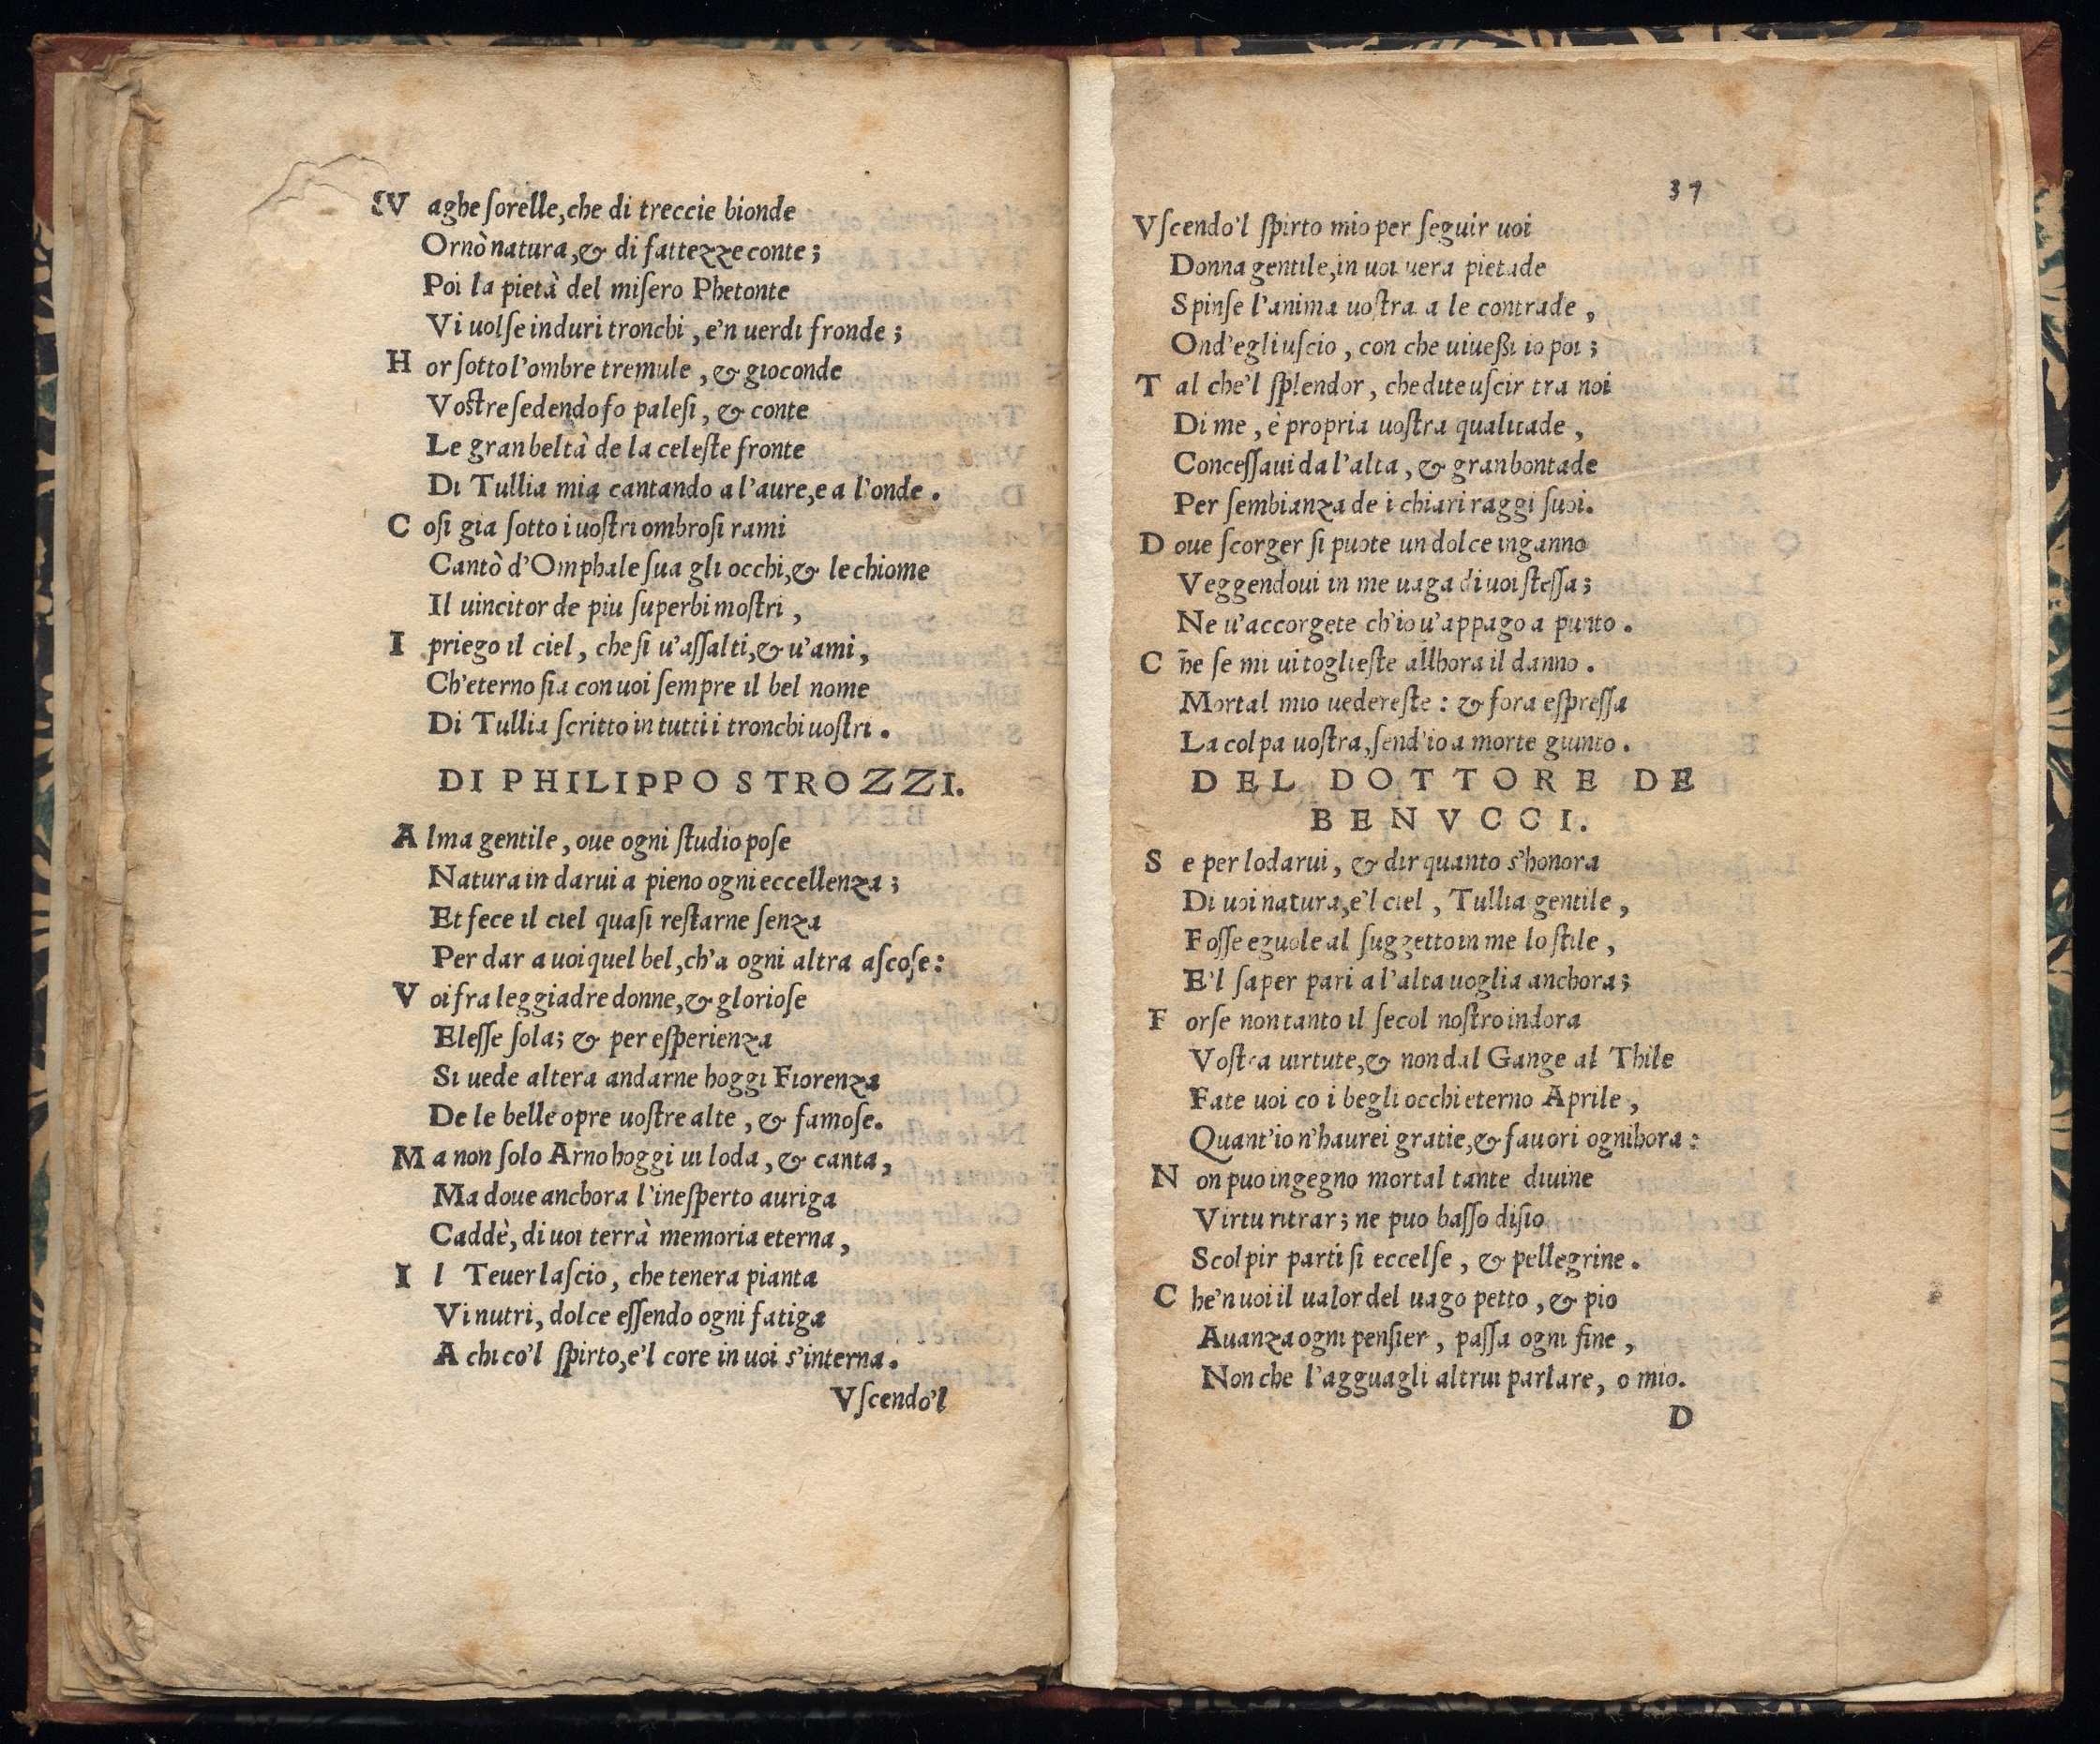 Vaghe ſorelle, che di treccie bionde
Ornò natura, & di fattezze conte;
Poi la pietà del miſero Phetonte
Vi uolſe in duri tronchi, e'n uerdi fronde;
Hor ſotto l'ombre tremule, & gioconde
Vostre ſedendo fo paleſi, & conte
Le gran beltà de la celeſte fronte
Di Tullia mia cantando a l'aure, e a l'onde.
Coſi gia ſotto i uoſtri ombroſi rami
Cantò d'Omphale ſua gli occhi, & le chiome
Il uincitor de piu ſuperbi moſtri,
I priego il ciel, che ſi u'aſſalti, & u'ami,
Ch'eterno ſia con uoi ſempre il bel nome
Di Tullia ſcritto in tutti i tronchi uoſtri.
DI PHILIPPO STROZZI.
Alma gentile, oue ogni ſtudio poſe
Natura in darui a pieno ogni eccellenza;
Et fece il ciel quaſi reſtarne ſenza
Per dar a uoi quel bel, ch'a ogni altra aſcoſe:
Voi fra leggiadre donne, & glorioſe
Eleſſe ſola; & per eſperienza
Si uede altera andarne hoggi Fiorenza
De le belle opre uoſtre alte, & famoſe.
Ma non ſolo Arno hoggi ui loda, & canta,
Ma doue anchora l'ineſperto auriga
Caddè, di uoi terrà memoria eterna,
Il Teuer laſcio, che tenera pianta
Vi nutri, dolce eſſendo ogni fatiga
A chi co'l ſpirto, e'l core in uoi s'interna.
Vſcendo'l
37
Vſcendo'l ſpirto mio per ſeguir uoi
Donna gentile, in uoi uera pietade
Spinſe l'anima uoſtra a le contrade,
Ond'egli uſcio, con che uiueßi io poi;
Tal che'l ſplendor, che dite uſcir tra noi
Di me, è propria uoſtra qualitade,
Conceſſaui da l'alta, & gran bontade
Per ſembianza de i chiari raggi ſuoi.
Doue ſcorger ſi puote un dolce inganno
Veggendoui in me uaga di uoi ſteſſa;
Ne u'accorgete ch'io u'appago a punto.
Che ſe mi ui toglieſte allhora il danno.
Mortal mio uedereſte: & fora eſpreſſa
La colpa uoſtra, ſend'io a morte giunto.
DEL DOTTORE DE
BENVCCI.
Se per lodarui, & dir quanto s'honora
Di uoi natura, e'l ciel, Tullia gentile,
Foſſe eguole al ſuggetto in me lo ſtile,
E'l ſaper pari a l'alta uoglia anchora;
Forſe non tanto il ſecol noſtro indora
Voſtra uirtute, & non dal Gange al Thile
Fate uoi co i begli occhi eterno Aprile,
Quant'io n'haurei gratie, & fauori ognihora:
Non puo ingegno mortal tante diuine
Virtu ritrar; ne puo baſſo diſio
Scolpir parti ſi eccelſe, & pellegrine.
Che'n uoi il ualor del uago petto, & pio
Auanza ogni penſier, paſſa ogni fine,
Non che l'agguagli altrui parlare, o mio.
D